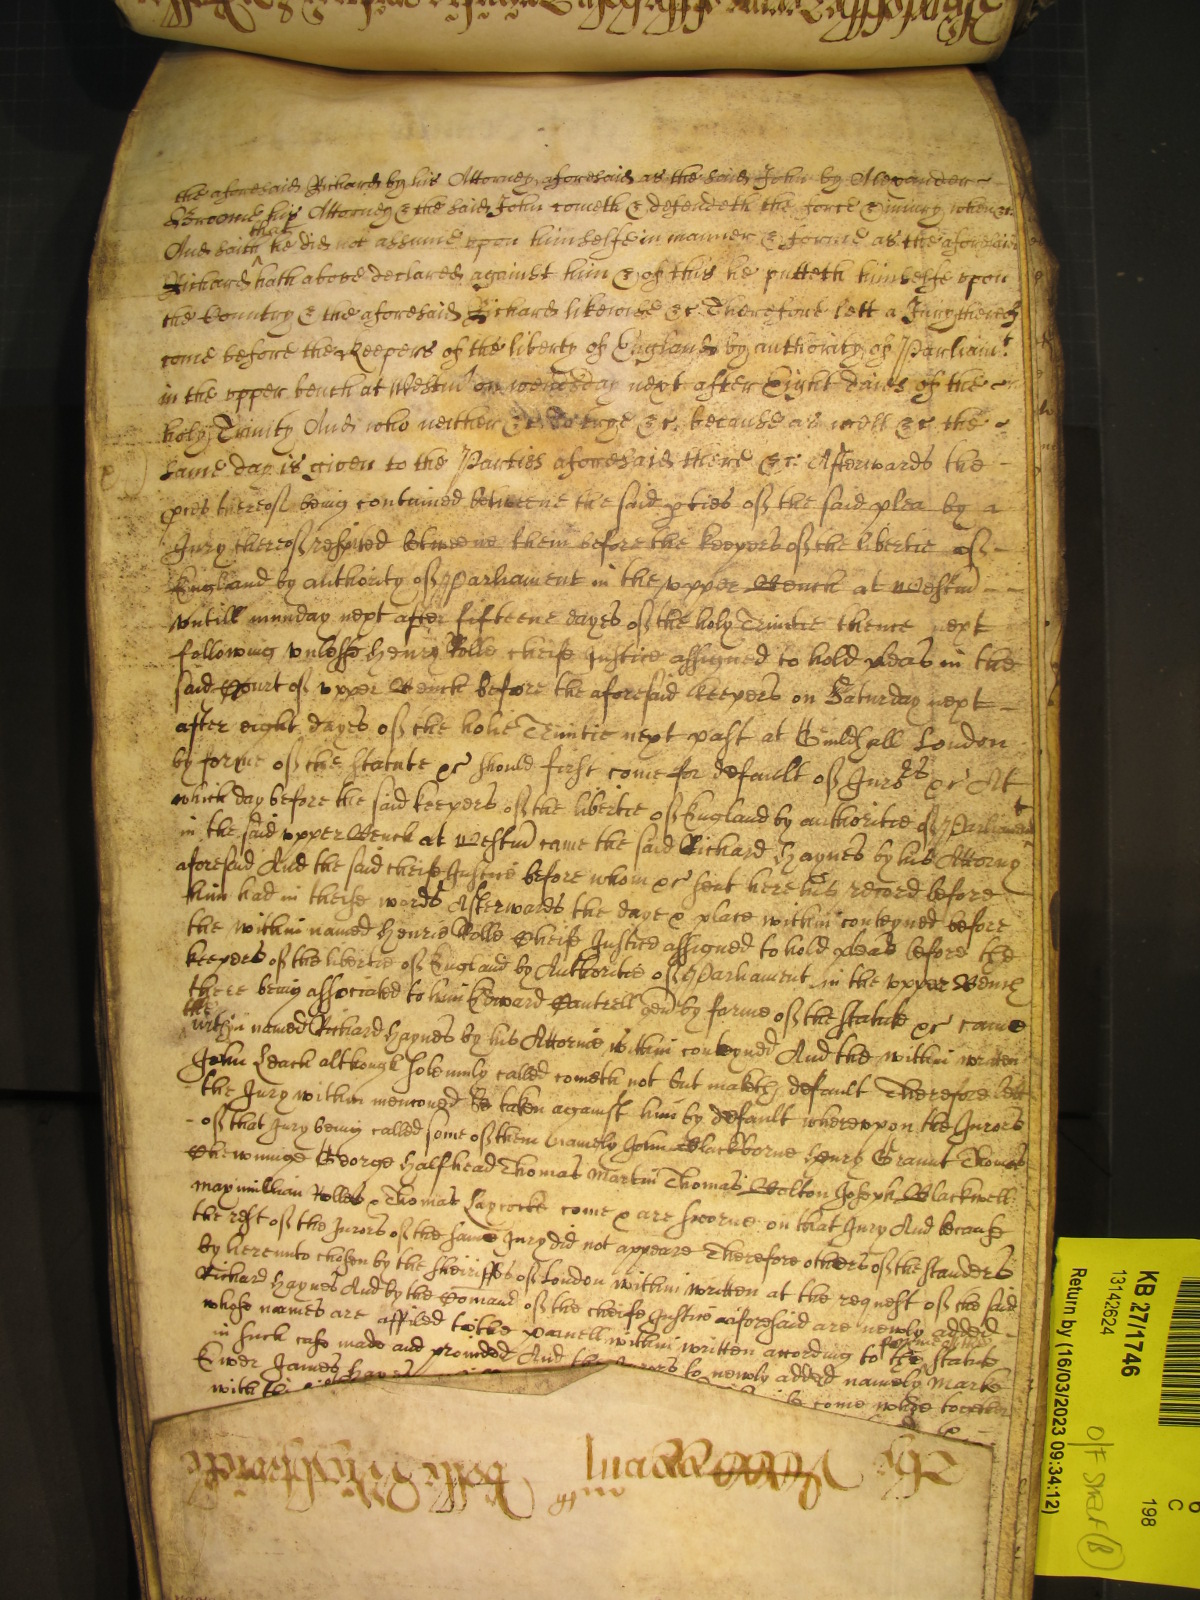 the aforesaid Richard by his Attorney aforesaid as the said John by Alexander
Broome his Attorney & the said John cometh & defendeth the force & iniury when &c
And saith that he did not assume vpon himselfe in manner & forme as the aforesaid
Richard hath aboue declared against him & of this he putteth himselfe vpon
the Country & the aforesaid Richard likewise &c Therefore lett a Jury thereof
come before the Keepers of the liberty of England by authority of Parliamt
in the vpper bench at Westm on wednsday next after Eight daies of the
holy Trinity And who neither &c To enge &c. because as well &c the
same day is given to the Parties aforesaid there &c. Afterwards the
pces thereof being continued betweene the said pties of the said plea by a
Jury thereof respited betweene them before the keepers of the libertie of
England by authority of Parliament in the vpper Bench at Westm
vntill munday next after fifteene dayes of the holy Trinitie thence next
following vnlesse Henry Rolle cheife Justice assigned to hold pleas in the
said Court of vpper Bench before the aforesaid keepers on Saturday next
after eight dayes of the holie Trinitie next past at Guildhall London
by forme of the statute &c should first come for default of Jurrs &c At
which day before the said keepers of the libertie of England by authoritie of Parliamt
in the said vpper Bench at Westm came the said Richard Haynes by his Attorny
aforesaid And the said cheife Justice before whom &c sent here his record before
him had in theise words Afterwards the daye & place within conteyned before
the within named Henrie Rolle Cheife Justice assigned to hold pleas before the
keepers of the libertie of England by Authoritie of Parliament in the vpper Bench
there being associated to him Edward Cantrell gen by forme of the statute &c came
the within named Richard Haynes by his Attornie within conteyned And the within written
John Leach although solemnly called cometh not but maketh default Therefore lett
the Jury within menconed be taken against him by default wherevpon the Jurors
of that Jury being called some of them namely John Blackborne Henry Graunt Thomas
Chewninge George Halfhead Thomas Martin Thomas Bolton Joseph Blackwell
Maximillian Rolles & Thomas Laycocke come & are sworne on that Jury And because
the rest of the Jurors of the same Jury did not appeare Therefore others of the standers
by herevnto chosen by the sheiriffes of London within written at the request of the said
Richard Haynes And by the Comand of the cheife Justice aforesaid are newly added
whose names are affiled to the pannell within written according to the forme of the statute
in such case made and provided And the Jurors so newly added namely Marke
Ewer James Hayes
with the come whoe together
KB 27/1746
13142624
Return by (16/03/2023 09:34:12)
C
198